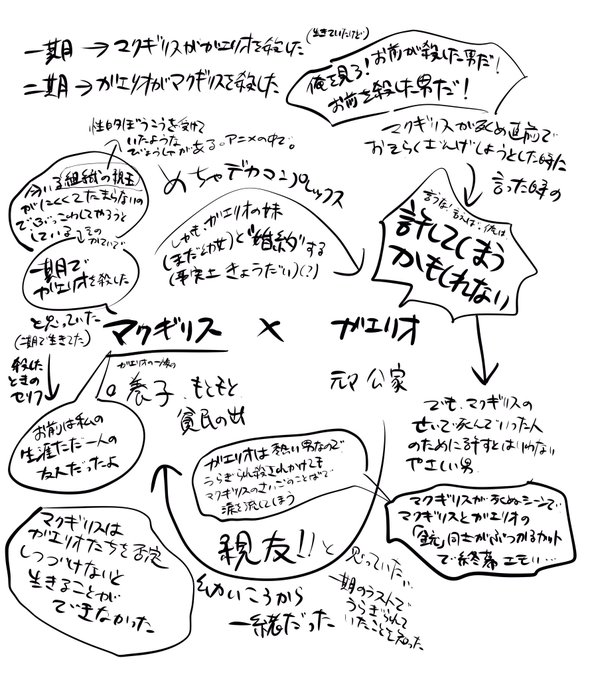 一期→マクギリスがガエリオを殺した
(生きていたけど)
二期→ガエリオがマクギリスを殺した
俺を見ろ!お前が殺した男だ!
お前を殺した男だ!
マクギリスが死ぬ直前で
おそらくざんげしようとした時に
言った時の
言うな!言えば…俺は…
許してしまう
かもしれない
性的ぼうこうを受けて
いたような
びょうしゃがある。アニメの中で。
今いる組織の親玉
がにくくてたまらないの
でぶっこわしてやろうと
している
その
かていで
一期で
ガエリオを殺した
と思っていた
(二期で生きてた)
めちゃデカコンプレックス
しかも、ガエリオの妹
(まだ幼女)と"婚約"する
(事実上きょうだい)(?)
マクギリス × ガエリオ
殺した
ときの
セリフ
お前は私の
生涯ただ一人の
友人だったよ
養子、もともと
貧民の出
元マ公家
でも、マクギリスの
せいで死んでいった人
のために許すとはいわない
やさしい男
ガエリオは熱い男なので
うらぎられ殺されかけても
マクギリスのさいごのことばで
涙を流してしまう
マクギリスが死ぬシーンで
マクギリスとガエリオの
「銃」同士がぶつかるカット
で終幕 エモい…
親友!!と思っていた…
幼いころから
一緒だった
一期のラストで
うらぎられて
いたことを知った
マクギリスは
ガエリオたちを否定
しつづけないと
生きることが
できなかった